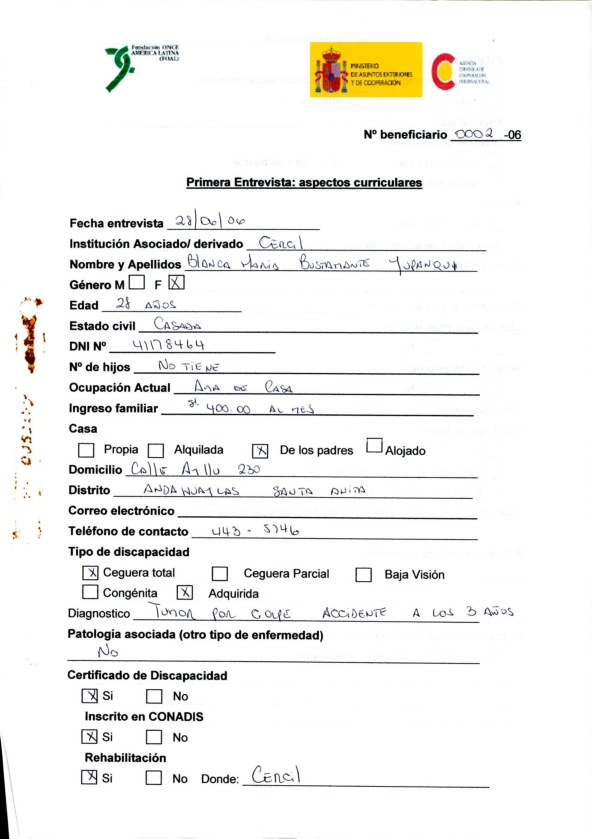 Fundación ONCE
AMÉRICA LATINA
(FOAL)
MINISTERIO
DE ASUNTOS EXTERIORES
Y DE COOPERACIÓN
AGENCIA
ESPAÑOLA DE
COOPERACIÓN
INTERNACIONAL
Nº beneficiario 0002 -06
Primera Entrevista: aspectos curriculares
Fecha entrevista 28/06/06
Institución Asociado/ derivado CERCIL
Nombre y Apellidos Blanca Maria Bustamante Yupanqui
Género M F X
Edad 28 AÑOS
Estado civil CASADA
DNI Nº 41178464
Nº de hijos NO TIENE
Ocupación Actual AMA DE CASA
Ingreso familiar S/. 400.00 AL MES
Casa
Propia Alquilada X De los padres Alojado
Domicilio Calle Ayllu 230
Distrito ANDAHUAYLAS SANTA ANITA
Correo electrónico
Teléfono de contacto 443-5746
Tipo de discapacidad
X Ceguera total Ceguera Parcial Baja Visión
Congénita X Adquirida
Diagnostico TUMOR POR GOLPE ACCIDENTE A LOS 3 AÑOS
Patología asociada (otro tipo de enfermedad)
No
Certificado de Discapacidad
X Si No
Inscrito en CONADIS
X Si No
Rehabilitación
X Si No Donde: CERCIL